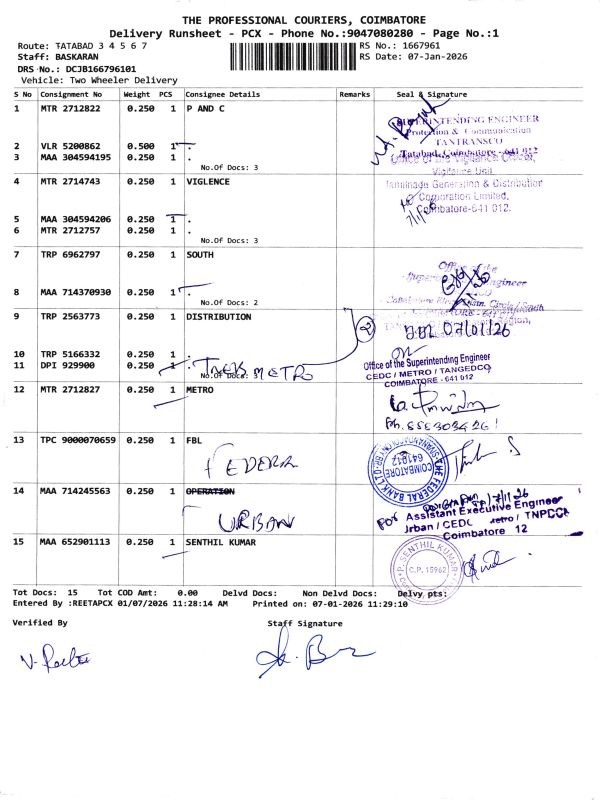 THE PROFESSIONAL COURIERS, COIMBATORE
Delivery Runsheet - PCX - Phone No.:9047080280 - Page No.:1
Route: TATABAD 3 4 5 6 7
RS No.: 1667961
Staff: BASKARAN
RS Date: 07-Jan-2026
DRS No.: DCJB166796101
Vehicle: Two Wheeler Delivery
S No Consignment No Weight PCS Consignee Details Remarks Seal & Signature
1 MTR 2712822 0.250 1 P AND C
SUPERINTENDING ENGINEER
Protection & Communication
TANTRANSCO
Tatabad, Coimbatore - 641 012
2 VLR 5200862 0.500 1 .
3 MAA 304594195 0.250 1 .
No.Of Docs: 3
Office of the Vigilance Officer,
Vigilance Unit
4 MTR 2714743 0.250 1 VIGLENCE
Tamilnadu Generation & Distribution
Corporation Limited,
Coimbatore-641 012.
5 MAA 304594206 0.250 1 .
6 MTR 2712757 0.250 1 .
No.Of Docs: 3
7 TRP 6962797 0.250 1 SOUTH
Office of the
Engineer
8 MAA 714370930 0.250 1 .
No.Of Docs: 2
9 TRP 2563773 0.250 1 DISTRIBUTION
2
07/01/26
10 TRP 5166332 0.250 1 .
11 DPI 929900 0.250 1 .
No.Of Docs: 3
METRO
Office of the Superintending Engineer
CEDC / METRO / TANGEDCO
COIMBATORE - 641 012
12 MTR 2712827 0.250 1 METRO
13 TPC 9000070659 0.250 1 FBL
FEDERA
THE FEDERAL BANK LTD
COIMBATORE
641012
14 MAA 714245563 0.250 1 OPERATION
URBAN
7/1/26
for Assistant Executive Engineer
Urban / CEDC Metro / TNPDCL
Coimbatore 12
15 MAA 652901113 0.250 1 SENTHIL KUMAR
P. SENTHIL KUMAR
C.P. 15962
Tot Docs: 15 Tot COD Amt: 0.00 Delvd Docs: Non Delvd Docs: Delvy pts:
Entered By :REETAPCX 01/07/2026 11:28:14 AM Printed on: 07-01-2026 11:29:10
Verified By Staff Signature